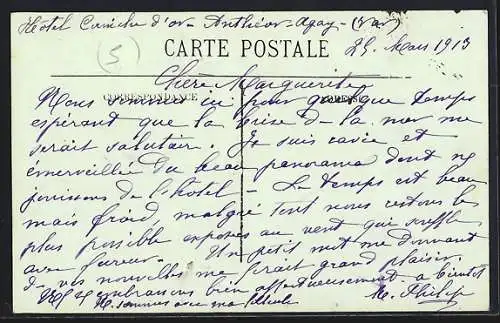 Hôtel Corniche d'or - Anthéor - Agay - (Var)
CARTE POSTALE
25 Mars 1913
CORRESPONDANCE
Chère Marguerite
Nous sommes ici pour quelque temps
espérant que la brise de la mer me
serait salutaire. Je suis ravie et
émerveillée du beau panorama dont ne
jouissons de l'hôtel - Le temps est beau
mais froid, malgré tout nous restons les
plus possible exposés au vent qui souffle
avec fureur. Un petit mot me donnant
de vos nouvelles me ferait grand plaisir
embrassons bien affectueusement à bientôt
M. Philip